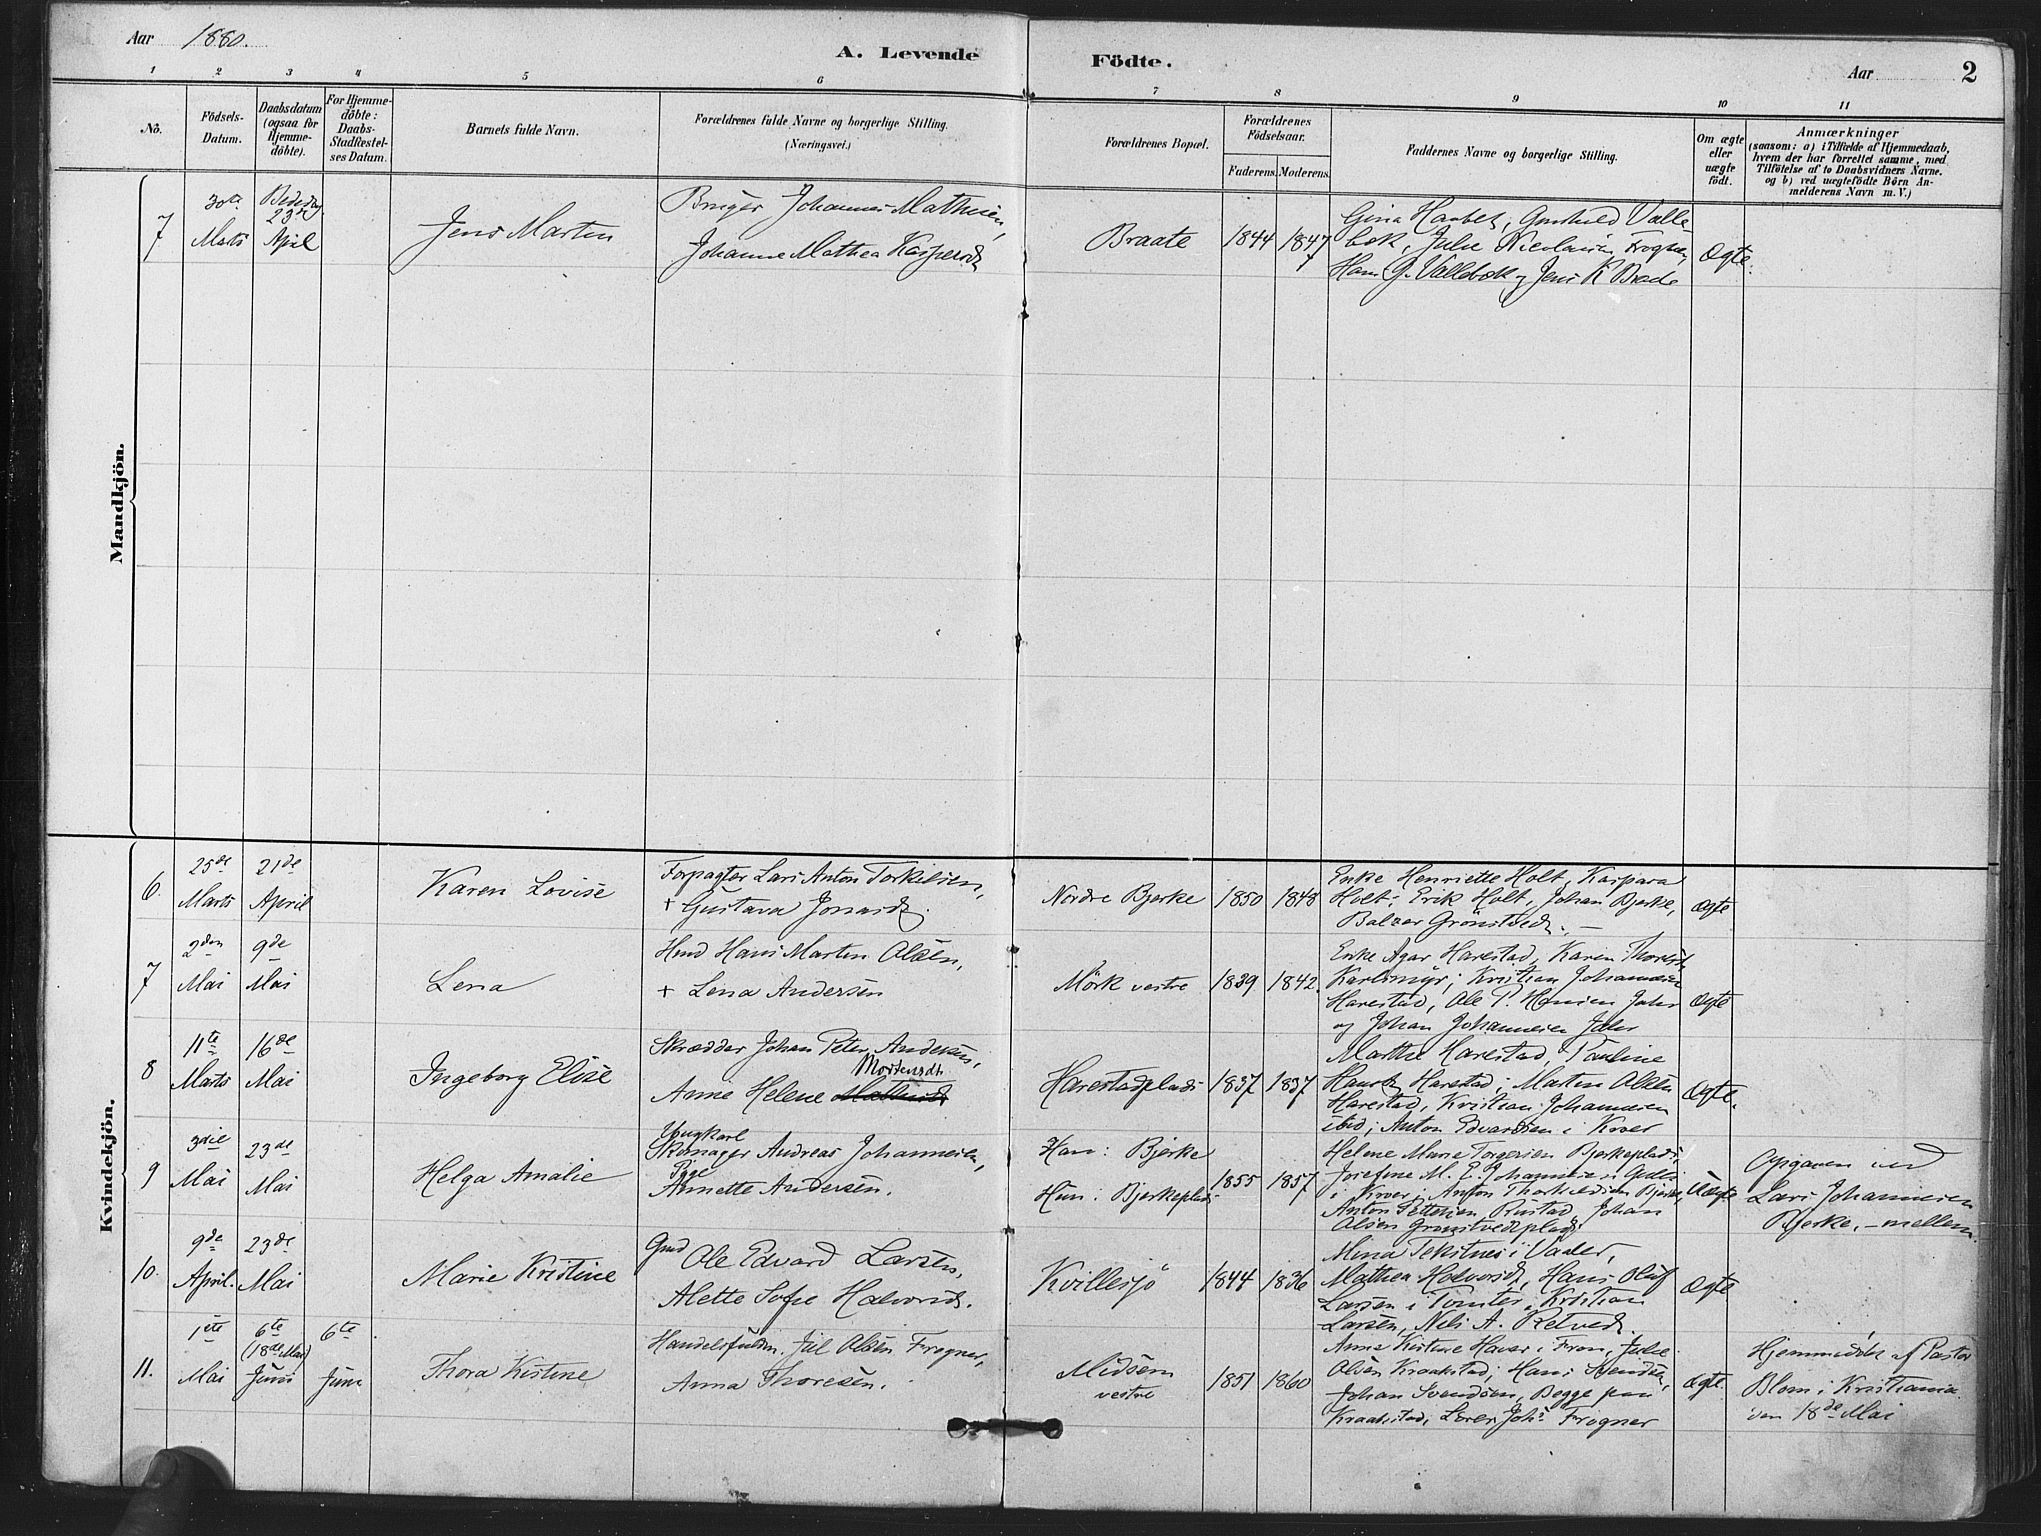 Aar 1880.
A. Levende Födte.
Aar 2
1 2 3 4 5 6 7 8 9 10 11
No.
Födsels-
Datum.
Daabsdatum
(ogsaa for
Hjemme-
döbte).
For Hjemme-
döbte:
Daabs-
Stadfæstel-
ses Datum.
Barnets fulde Navn.
Forældrenes fulde Navne og borgerlige Stilling.
(Næringsvei.)
Forældrenes Bopæl.
Forældrenes
Födselsaar.
Faderens. Moderens.
Faddernes Navne og borgerlige Stilling.
Om ægte
eller
uægte
födt.
Anmærkninger
(saasom: a) i Tilfælde af Hjemmedaab,
hvem der har forrettet samme, med
Tilföielse af to Daabsvidners Navne.
og b) ved uægtefödte Börn An-
melderens Navn m.V.)
Mandkjön.
7
30te
Marts
Bededag
23de
April
Jens Martin
Bruger Johannes Mathisen,
Johanne Mathea Kaspersd.
Braate
1844 1847
Gina Haabet, Gunhild Valle-
bæk, Julie Nicolaisen Frogner,
Hans G. Vallebæk, Jens K Braate
Ægte.
Kvindekjön.
6.
25de
Marts
21de
April
Karen Lovise
Forpagter Lars Anton Torkilsen,
+ Gustava Jonasd.
Nordre Bjerke
1850 1848
Enke Henriette Holt, Kaspara
Holt; Erik Holt, Johan Bjerke,
Balzer Grönstvedt. —
Ægte
7
2den
Mai
9de
Mai
Lena
Hmd Hans Martin Olsen,
+ Lena Andersen
Mörk vestre
1839 1842.
Enke Agar Harestad, Karen
Karlsmyr; Kristian Johannesen
Harestad, Ole P. Hansen
og Johan Johannesen
Ægte
8
11te
Marts
16de
Mai
Ingeborg Elise
Skrædder Johan Peter Andersen,
Mortensdt.
Anne Helene
Harestadplads
1837 1837
Marthe Harestad, Pauline
Harestad; Martin Olsen
Harestad, Kristian Johannesen
ibid; Anton Edvardsen i Kroer
Ægte.
9
3die
Mai
23de
Mai
Helga Amalie
Ungkarl
Skomager Andreas Johannesen,
Pige
Annette Andersen.
Han: Bjerke
Hun: Bjerkeplads
1855 1857
Helene Marie Torgersen Bjerkeplads,
Josefine M. E. Johannesen
i Kroer; Anton Bjerke,
Anton Rustad, Johan
Olsen Grönstvedtplads
Uægte
Opgaven ved
Lars Johannesen
Bjerke, — mellem.
10.
9de
April.
23de
Mai
Marie Kristine
Gmd
Ole Edvard Larsen,
Alette Sofie Halvorsd.
Kvillesjö
1844 1836
Mina Tekstnes i Vaaler,
Mathea Halvorsd, Hans Oluf
Larsen i Tomter, Kristian
Larsen, Nils A. Retvedt.
Ægte
11.
1ste
Mai
6te
(18de Mai)
Juni
6te
Juni
Thora Kistine
Handelsfuldm. Jul Olsen Frogner,
Anna Thoresen.
Midsem
vestre
1851 1860
Anne Kistine Haver i Fron, Julie
Olsen Kraakstad; Hans Svendsen,
Johan Svendsen, Begge paa
Kraakstad; Lærer Johs Frogner
Ægte.
Hjemmedöbt af Pastor
Blom i Kristiania
den 18de Mai